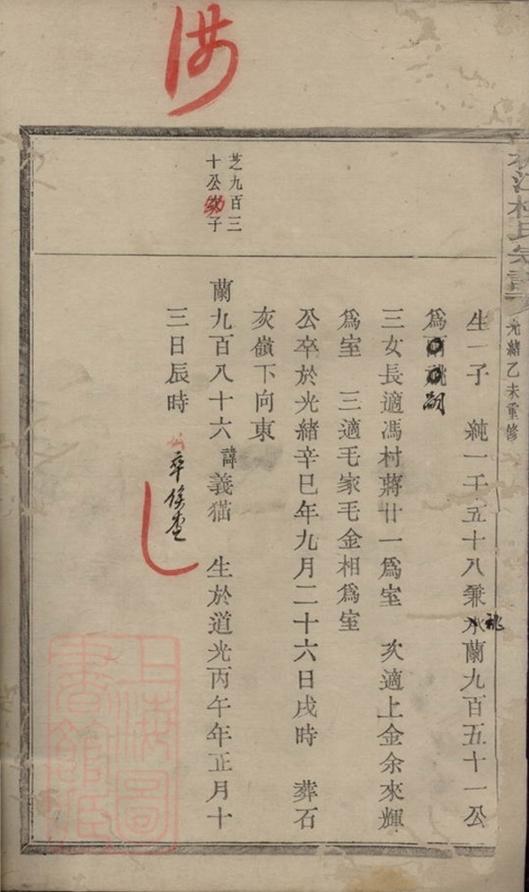 光緒乙未重修
生一子　純一千五十八兼承蘭九百五十一公
祧
爲嗣
三女長適馮村蔣廿一爲室　次適上金余來輝
爲室　三適毛家毛金相爲室
公卒於光緒辛巳年九月二十六日戌時　葬石
亥嶺下向東
芝九百三
十公子
蘭九百八十六諱義猫　生於道光丙午年正月十
三日辰時　卒俟查
上海圖
書館藏